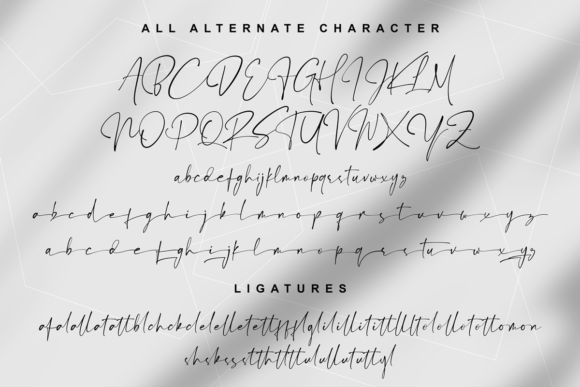 ALL ALTERNATE CHARACTER
ABCDEFGHIJKLM
NOPQRSTUVWXYZ
abcdefghijklmnopqrstuvwxyz
abcdefghijklmnopqrstuvwxyz
abcdefghijklmnopqrstuvwxyz
LIGATURES